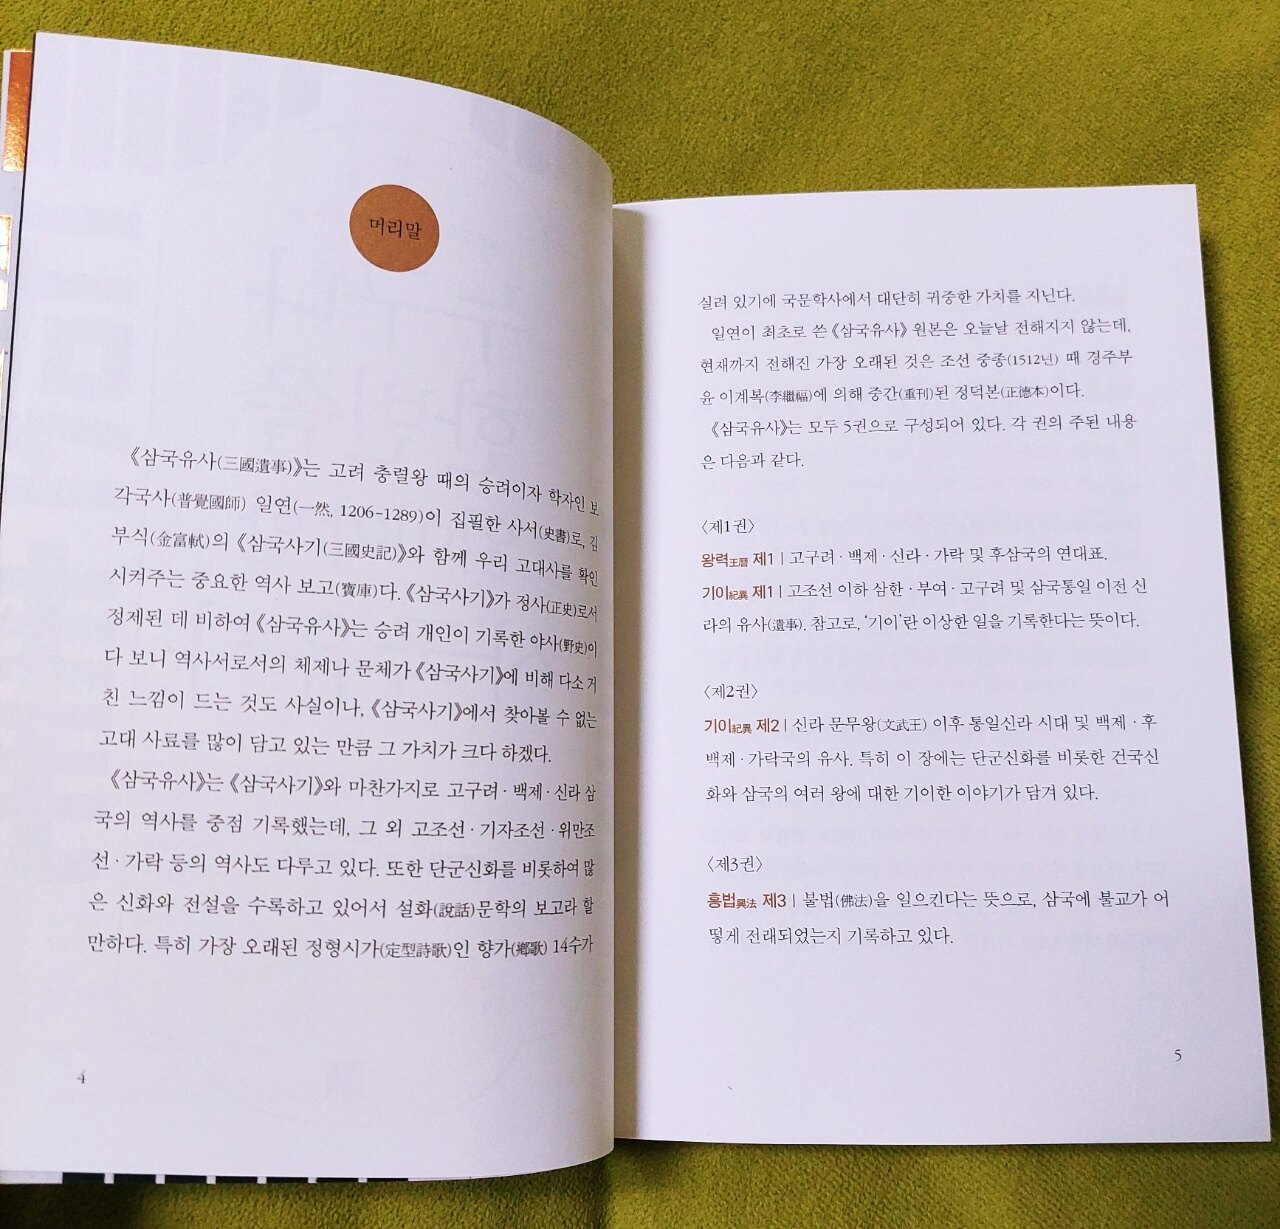 머리말
《삼국유사(三國遺事)》는 고려 충렬왕 때의 승려이자 학자인 보
각국사(普覺國師) 일연(一然, 1206-1289)이 집필한 사서(史書)로, 김
부식(金富軾)의 《삼국사기(三國史記)》와 함께 우리 고대사를 확인
시켜주는 중요한 역사 보고(寶庫)다. 《삼국사기》가 정사(正史)로서
정제된 데 비하여 《삼국유사》는 승려 개인이 기록한 야사(野史)이
다 보니 역사서로서의 체제나 문체가 《삼국사기》에 비해 다소 거
친 느낌이 드는 것도 사실이나, 《삼국사기》에서 찾아볼 수 없는
고대 사료를 많이 담고 있는 만큼 그 가치가 크다 하겠다.
《삼국유사》는 《삼국사기》와 마찬가지로 고구려·백제·신라 삼
국의 역사를 중점 기록했는데, 그 외 고조선·기자조선·위만조
선·가락 등의 역사도 다루고 있다. 또한 단군신화를 비롯하여 많
은 신화와 전설을 수록하고 있어서 설화(說話)문학의 보고라 할
만하다. 특히 가장 오래된 정형시가(定型詩歌)인 향가(鄕歌) 14수가
4
실려 있기에 국문학사에서 대단히 귀중한 가치를 지닌다.
일연이 최초로 쓴 《삼국유사》 원본은 오늘날 전해지지 않는데,
현재까지 전해진 가장 오래된 것은 조선 중종(1512년) 때 경주부
윤 이계복(李繼福)에 의해 중간(重刊)된 정덕본(正德本)이다.
《삼국유사》는 모두 5권으로 구성되어 있다. 각 권의 주된 내용
은 다음과 같다.
〈제1권〉
왕력王曆 제1 | 고구려·백제·신라·가락 및 후삼국의 연대표.
기이紀異 제1 | 고조선 이하 삼한·부여·고구려 및 삼국통일 이전 신
라의 유사(遺事). 참고로, ‘기이’란 이상한 일을 기록한다는 뜻이다.
〈제2권〉
기이紀異 제2 | 신라 문무왕(文武王) 이후 통일신라 시대 및 백제·후
백제·가락국의 유사. 특히 이 장에는 단군신화를 비롯한 건국신
화와 삼국의 여러 왕에 대한 기이한 이야기가 담겨 있다.
〈제3권〉
흥법興法 제3 | 불법(佛法)을 일으킨다는 뜻으로, 삼국에 불교가 어
떻게 전래되었는지 기록하고 있다.
5